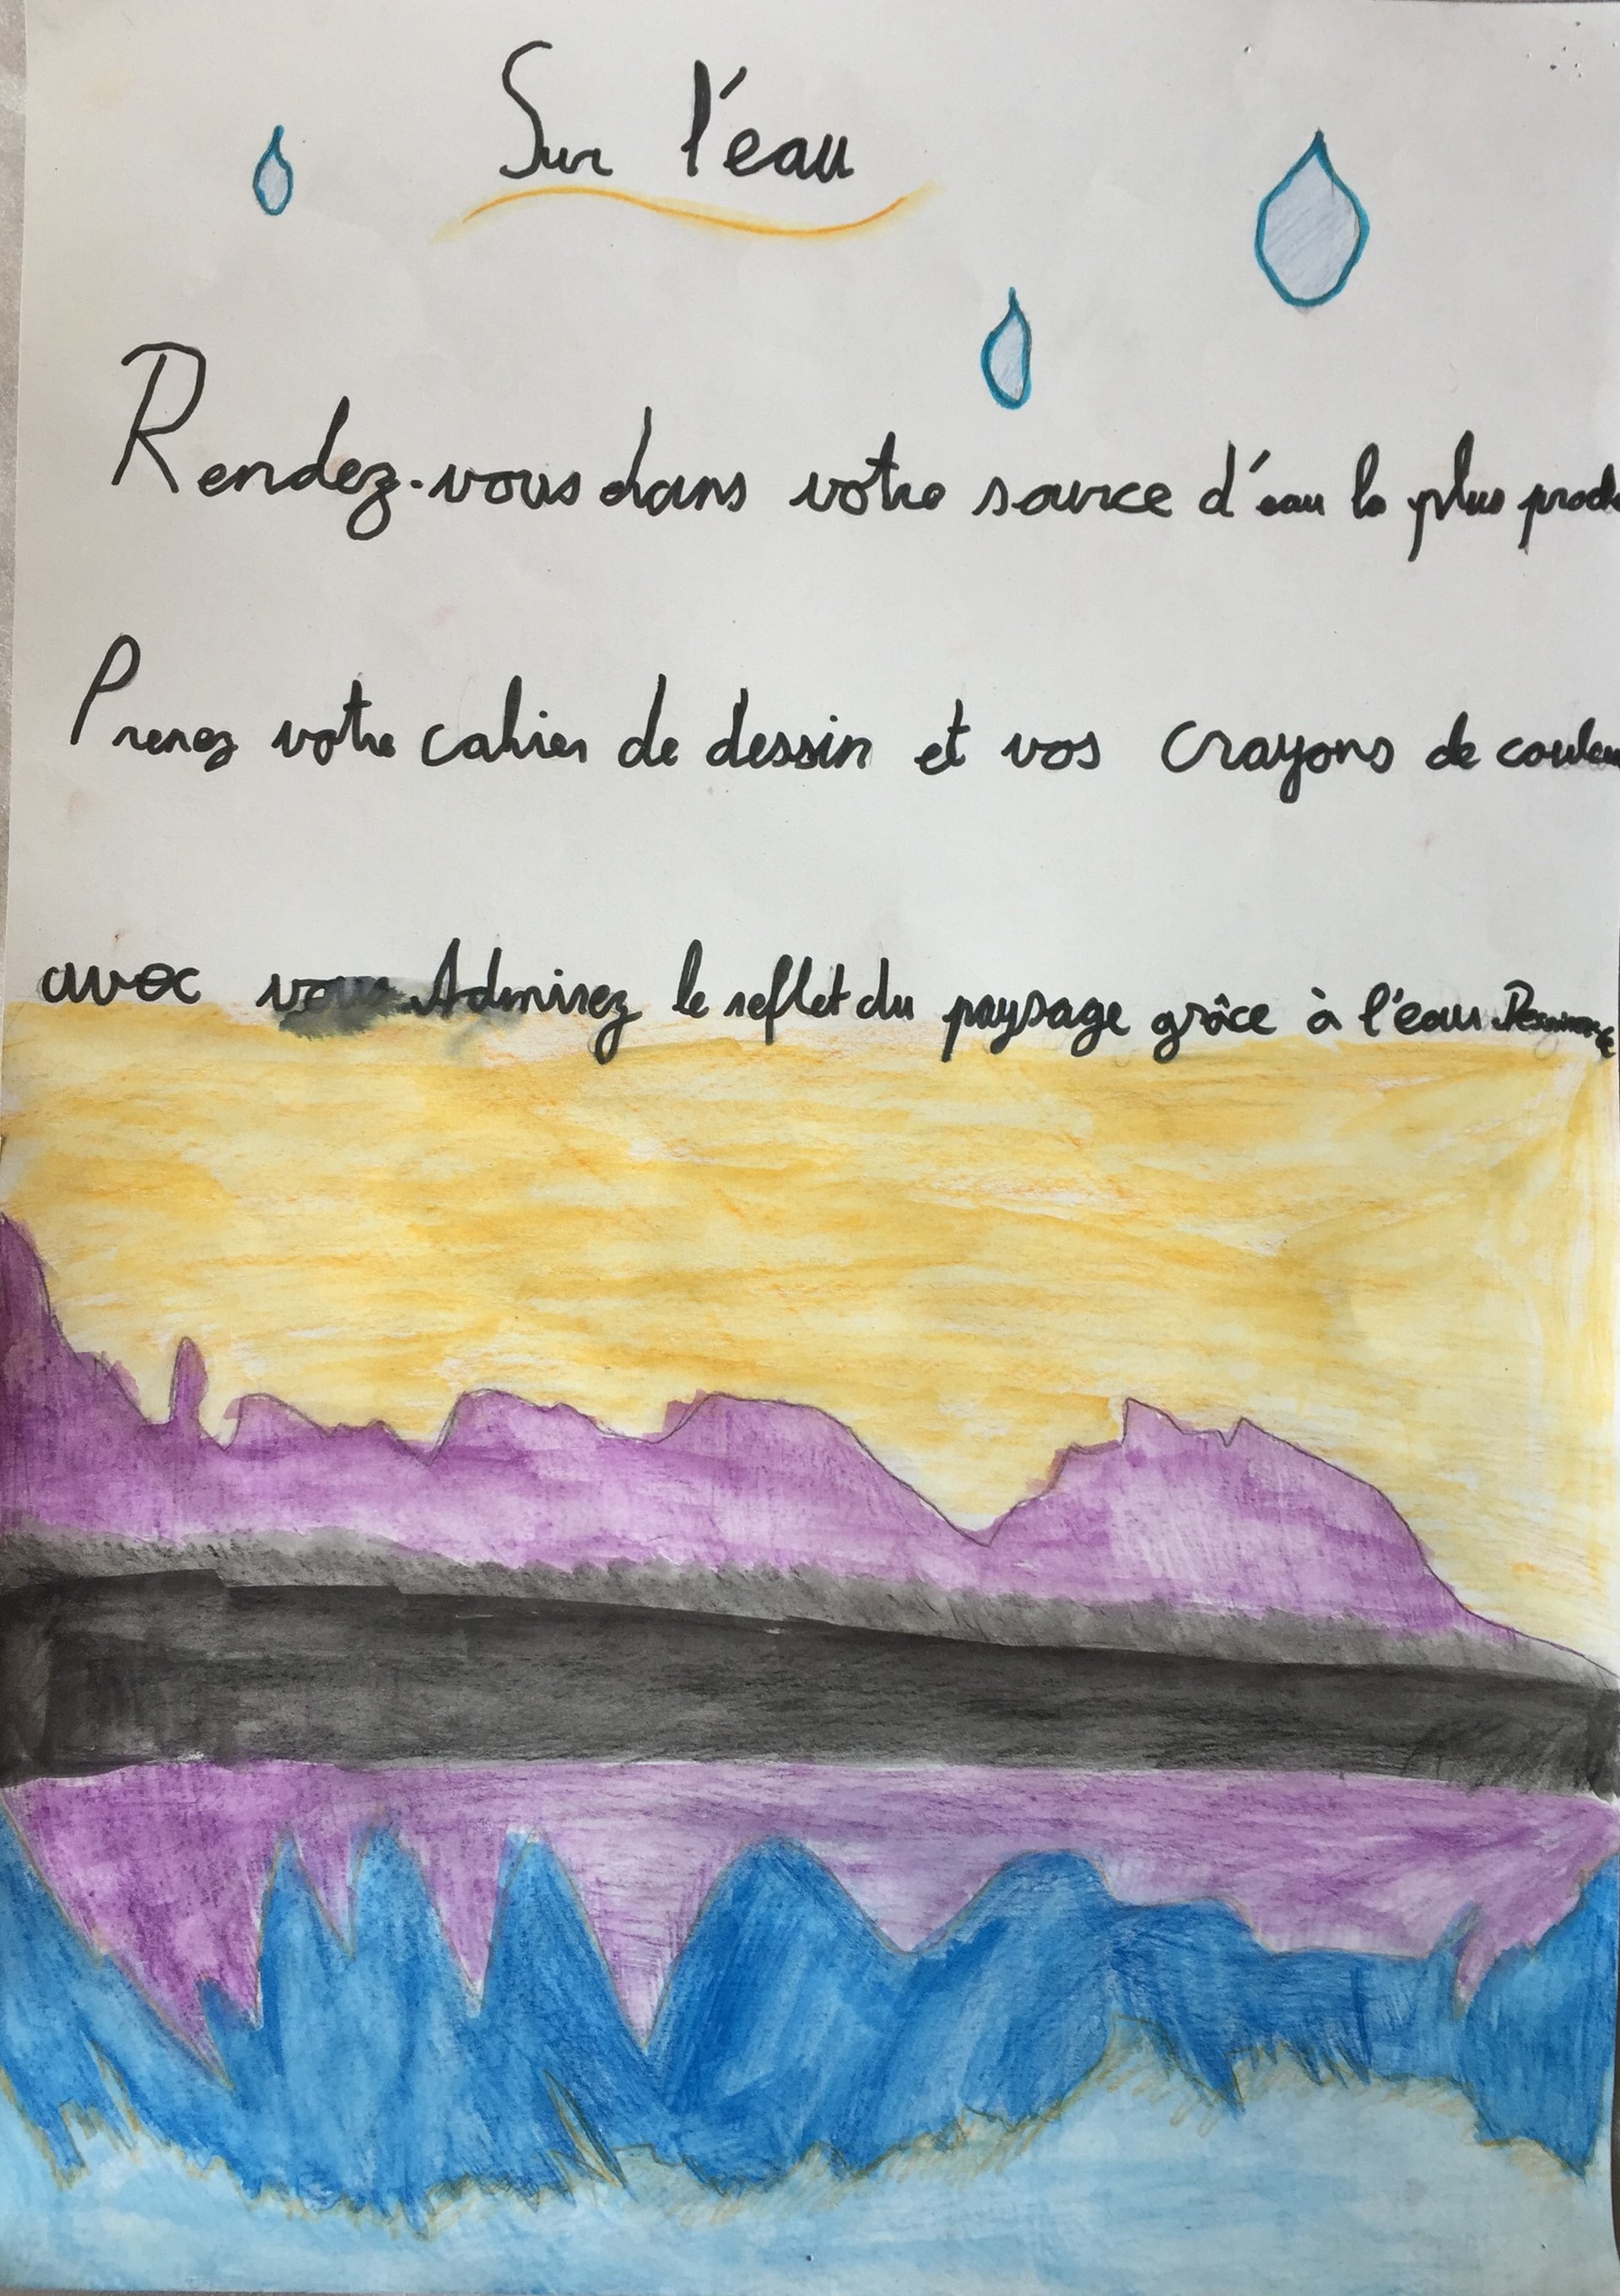 Sur l'eau
Rendez-vous dans votre source d'eau la plus
Prenez votre cahier de dessin et vos crayons de couleu
avec vous Admirez le reflet du paysage grâce à l'eau